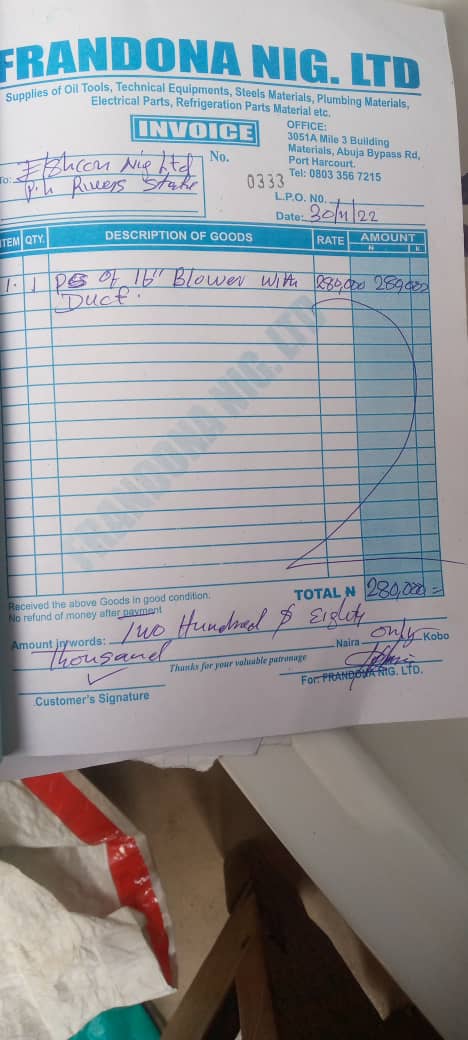 FRANDONA NIG. LTD
Supplies of Oil Tools, Technical Equipments, Steels Materials, Plumbing Materials,
Electrical Parts, Refrigeration Parts Material etc.
INVOICE
OFFICE:
3051A Mile 3 Building
Materials, Abuja Bypass Rd,
Port Harcourt.
Tel: 0803 356 7215
No. 0333
To: Nig Ltd
P.h Rivers State
L.P.O. NO.
Date: 30/11/22
ITEM QTY. DESCRIPTION OF GOODS RATE AMOUNT
N K
1. 1 Pcs of 16" Blower with 280,000 280,000
Duct.
FRANDONA NIG. LTD
Received the above Goods in good condition.
No refund of money after payment
TOTAL N 280,000 =
Amount in words: Two Hundred $ Eighty
Thousand Naira only Kobo
Thanks for your valuable patronage
Customer's Signature
For: FRANDONA NIG. LTD.